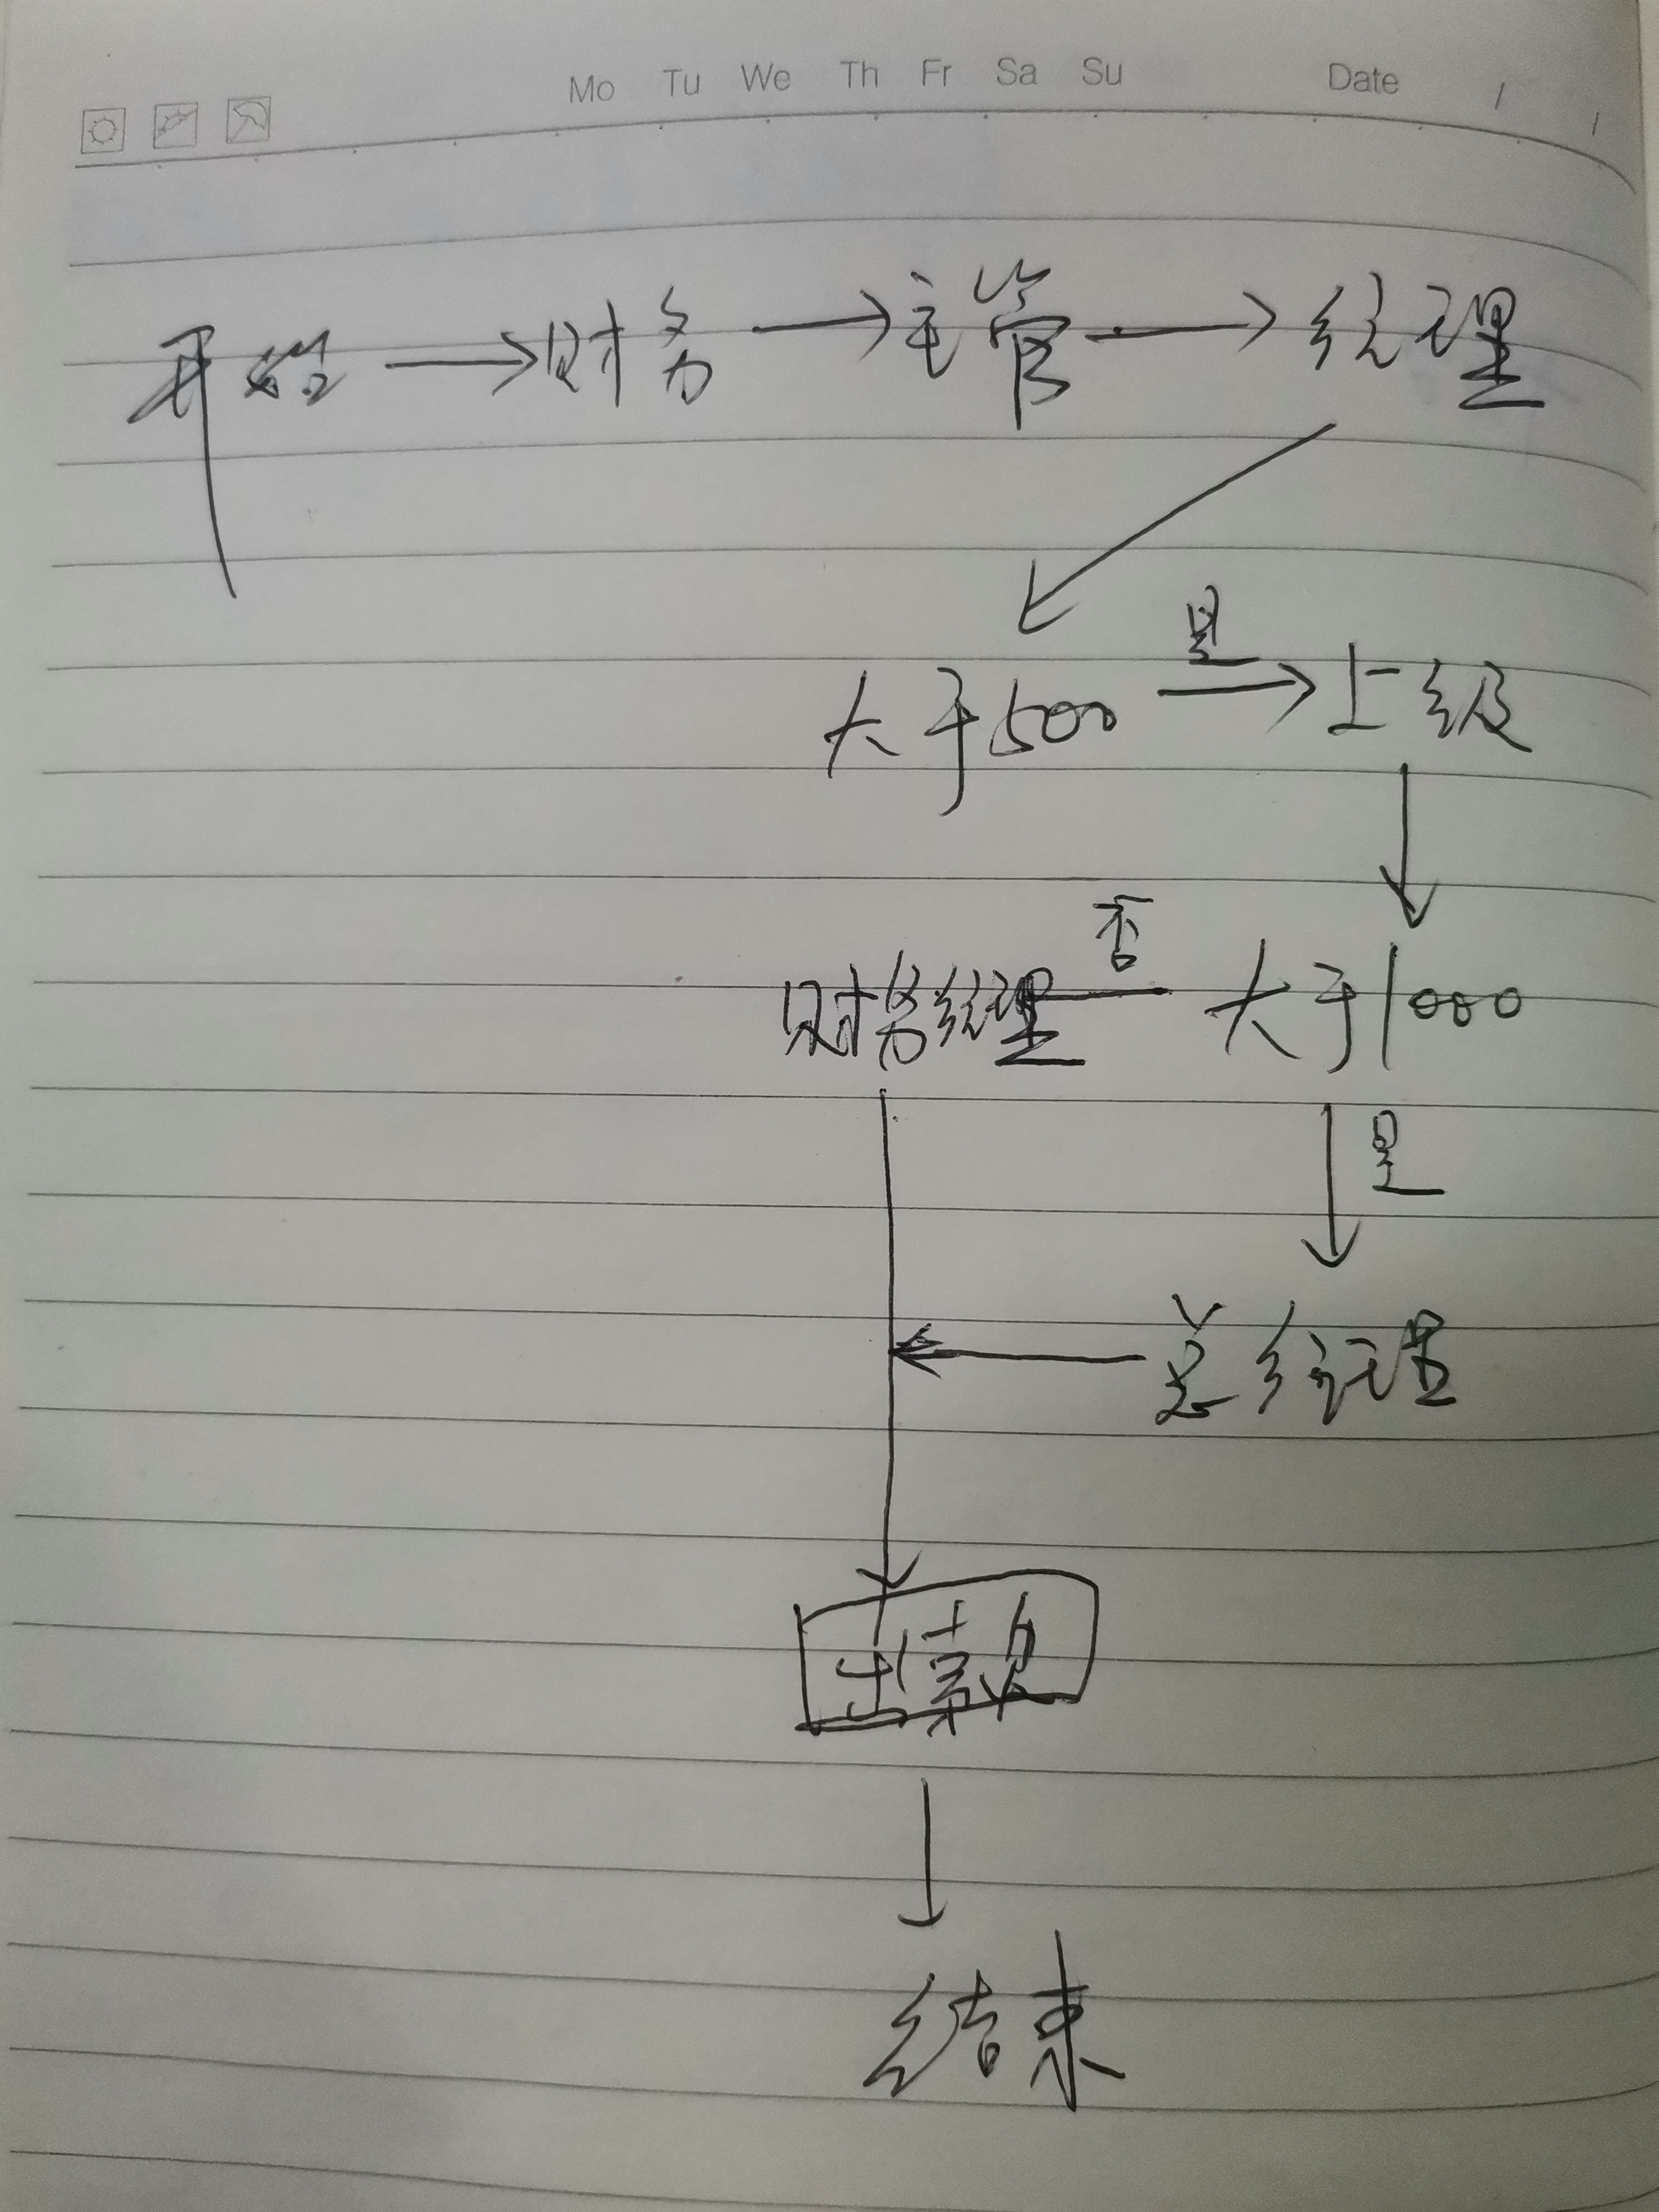 Mo Tu We Th Fr Sa Su Date / /
开始 → 财务 → 主管 → 经理
是
大于500 → 上级
否
财务经理 — 大于1000
是
总经理
出款
结束